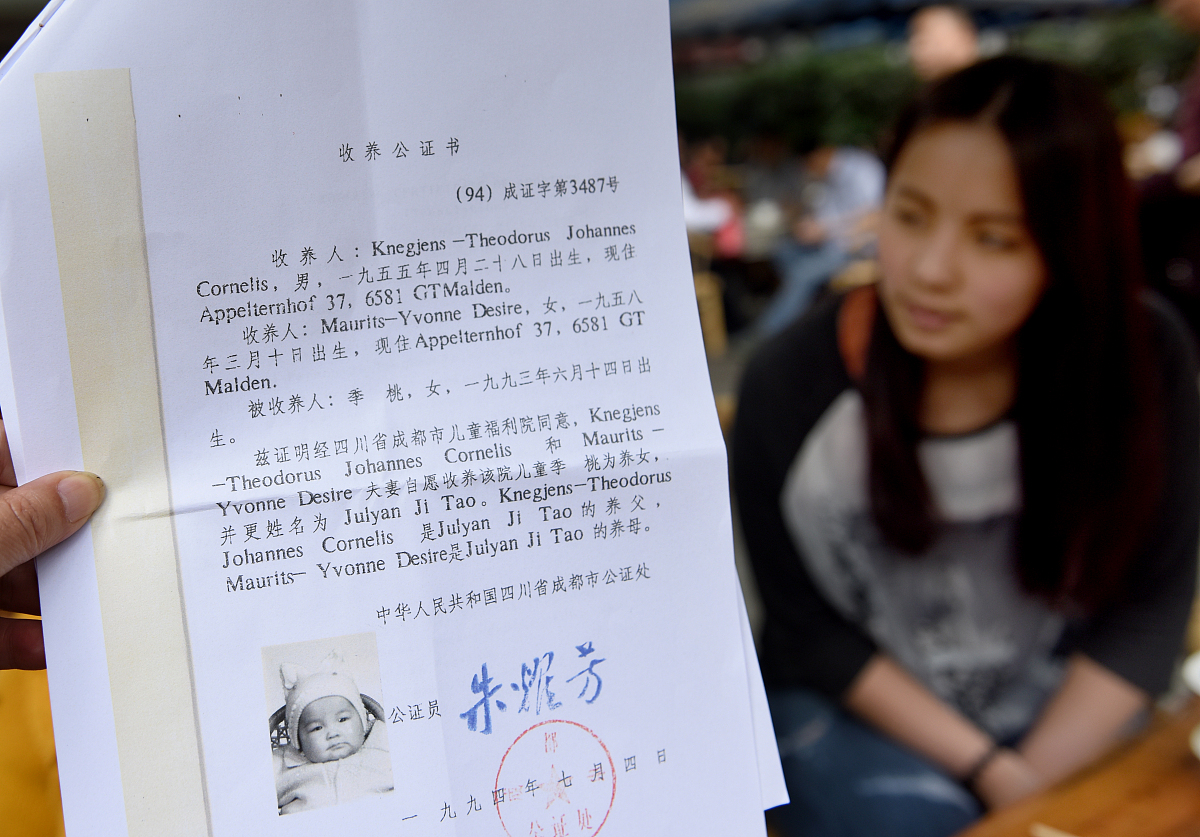 收养公证书
（94）成证字第3487号
收养人：Knegjens—Theodorus Johannes
Cornelis，男，一九五五年四月二十八日出生，现住
Appelternhof 37，6581 GT Malden。
收养人：Maurits—Yvonne Desire，女，一九五八
年三月十日出生，现住Appelternhof 37，6581 GT
Malden.
被收养人：季 桃，女，一九九三年六月十四日出
生。
兹证明经四川省成都市儿童福利院同意，Knegjens
—Theodorus Johannes Cornelis 和 Maurits—
Yvonne Desire 夫妻自愿收养该院儿童季 桃为养女，
并更姓名为 Julyan Ji Tao。Knegjens—Theodorus
Johannes Cornelis 是Julyan Ji Tao的养父，
Maurits— Yvonne Desire是Julyan Ji Tao 的养母。
中华人民共和国四川省成都市公证处
公证员 朱耀芳
一九九四年七月四日
公证处